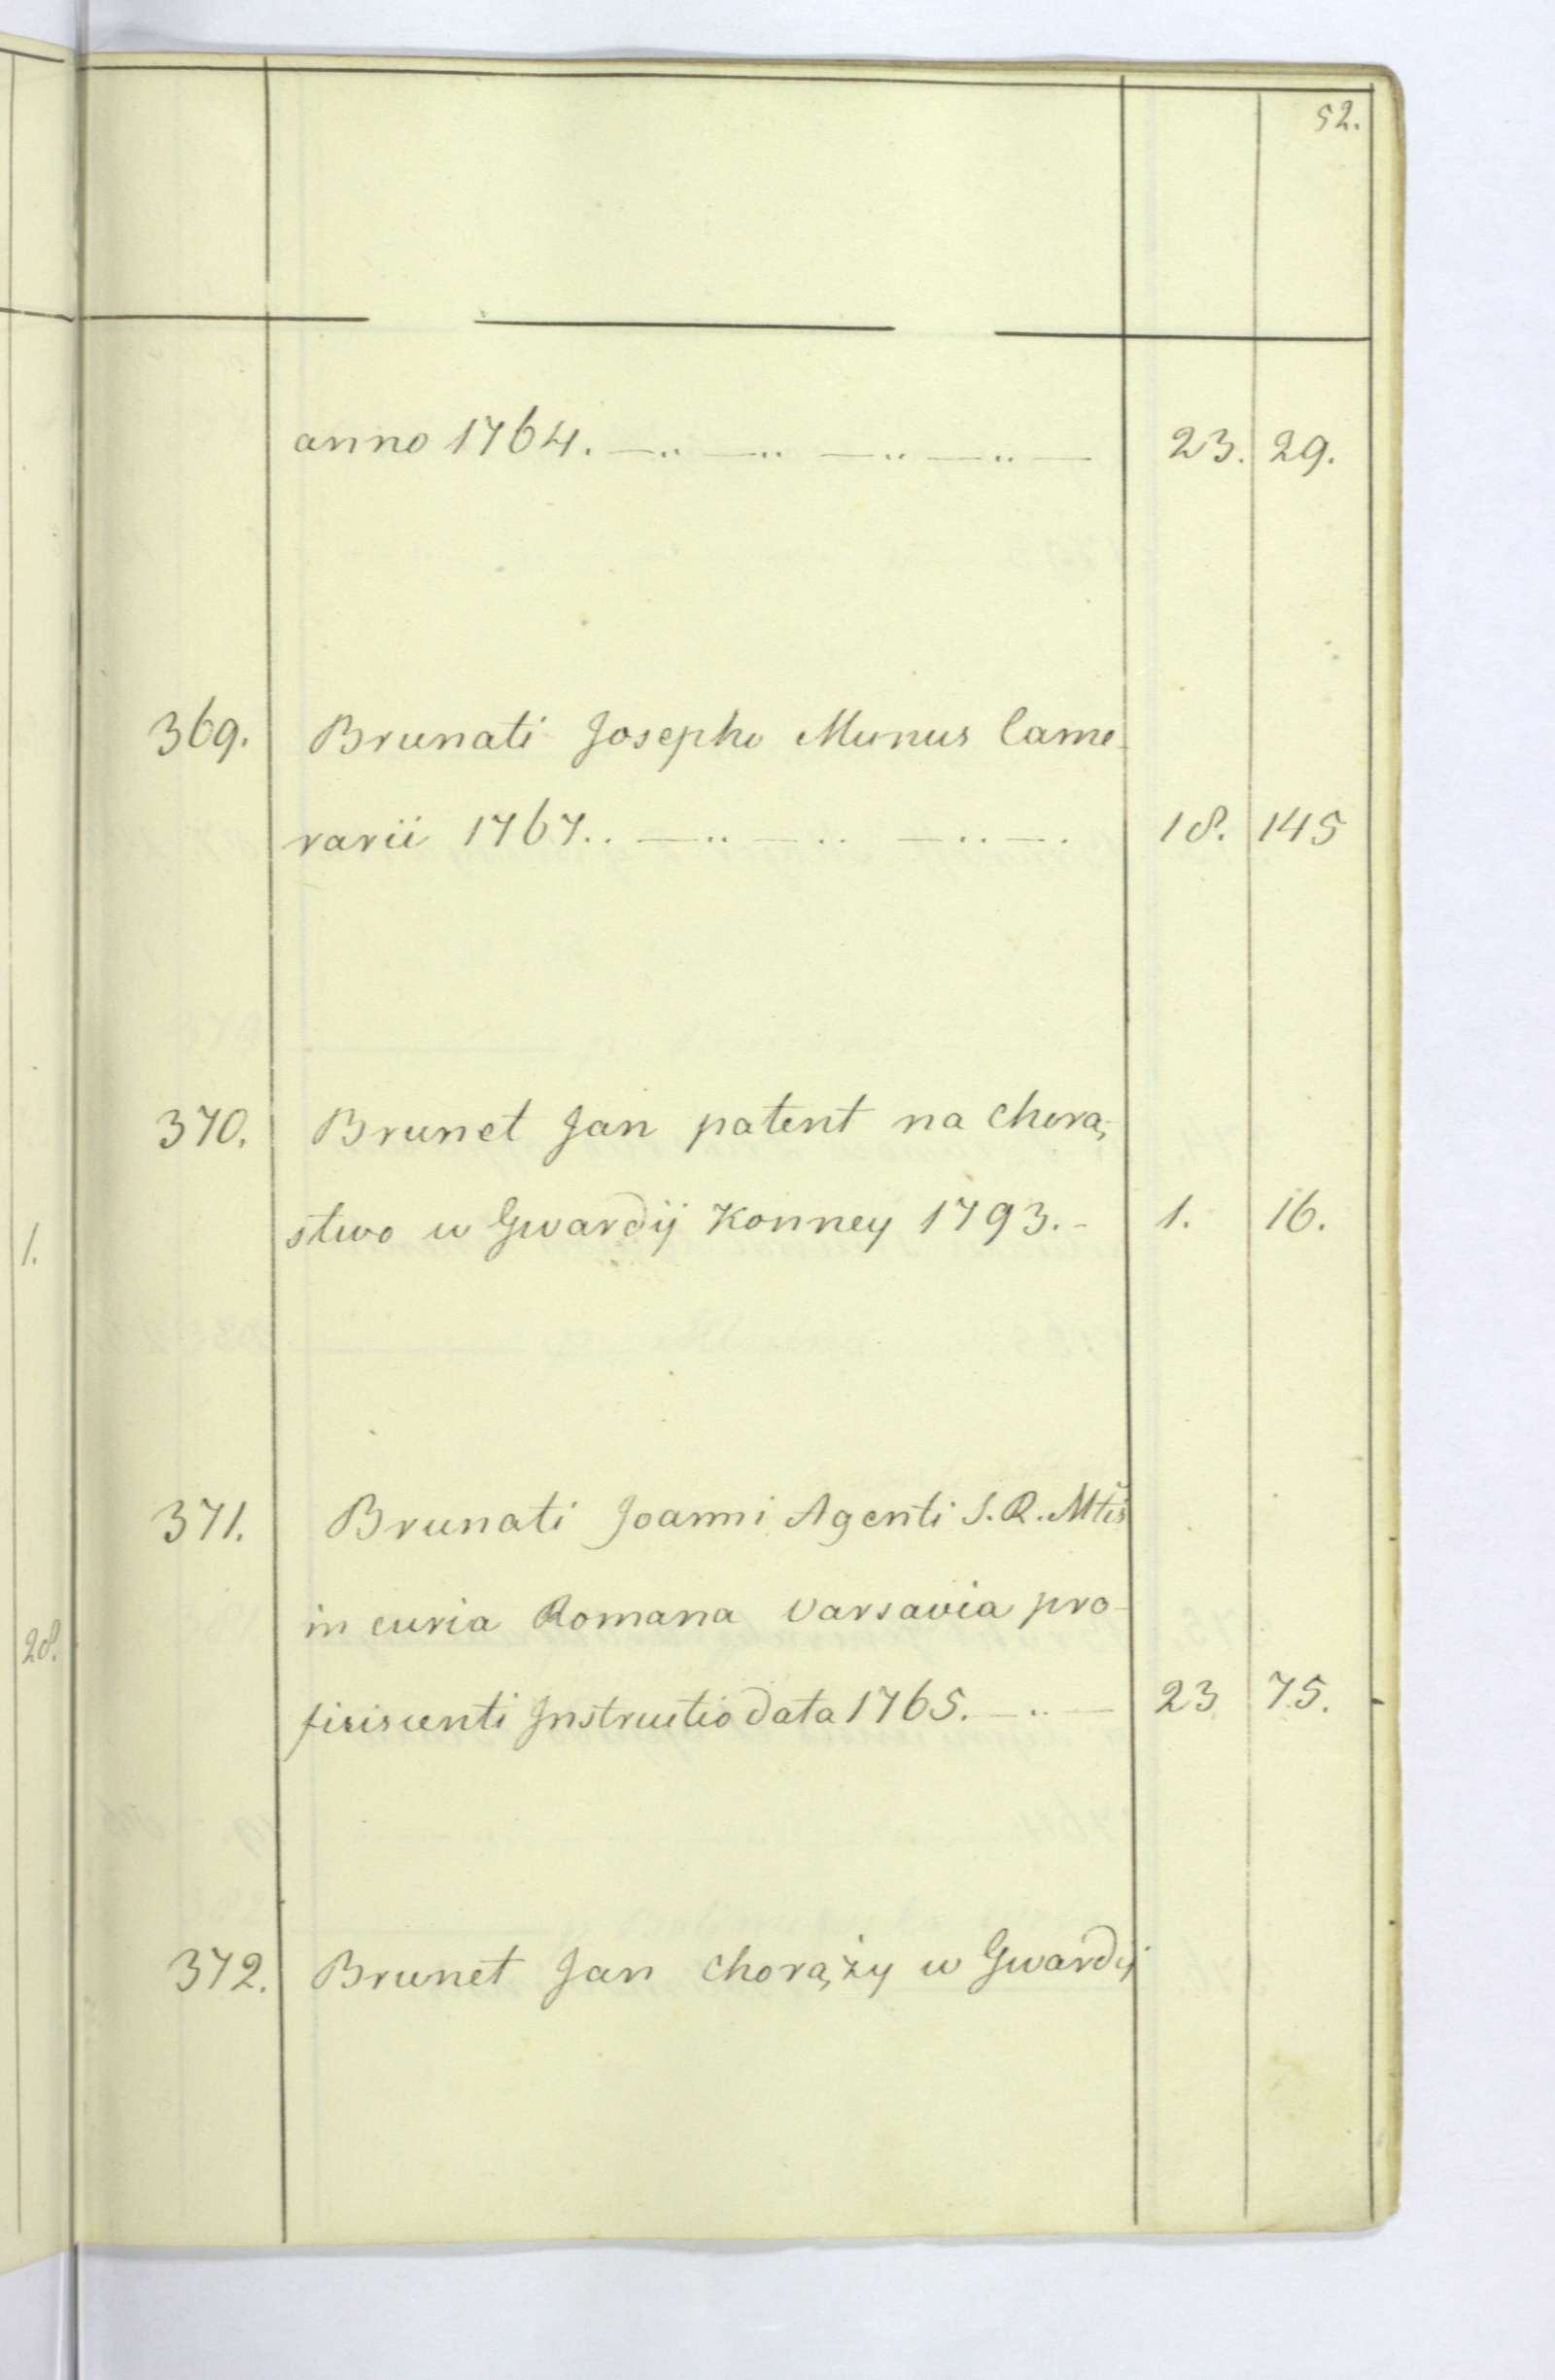 52.
anno 1764. 23. 29.
369. Brunati Josepho Munus Came-
rarii 1767. 18. 145
370. Brunet Jan patent na Chorą-
stwo w Gwardij Konney 1793. - 1. 16.
1.
371. Brunati Joanni Agenti S. R. Mtis
in curia Romana Varsavia pro-
28.
ficiscenti Instructio data 1765. 23 75.
372. Brunet Jan Chorąży w Gwardij